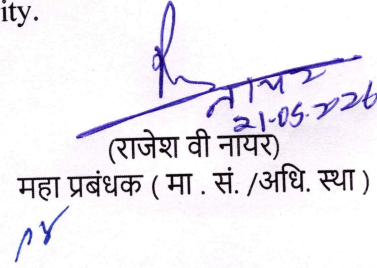 ity.
नायर
21-05-2026
(राजेश वी नायर)
महा प्रबंधक ( मा . सं. /अधि. स्था )